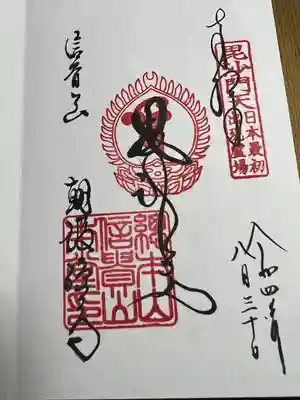 奉拝
日本最初
毘沙門天出現霊場
令和四年
八月二十日
總本山
信貴山
信貴山
朝護孫子寺